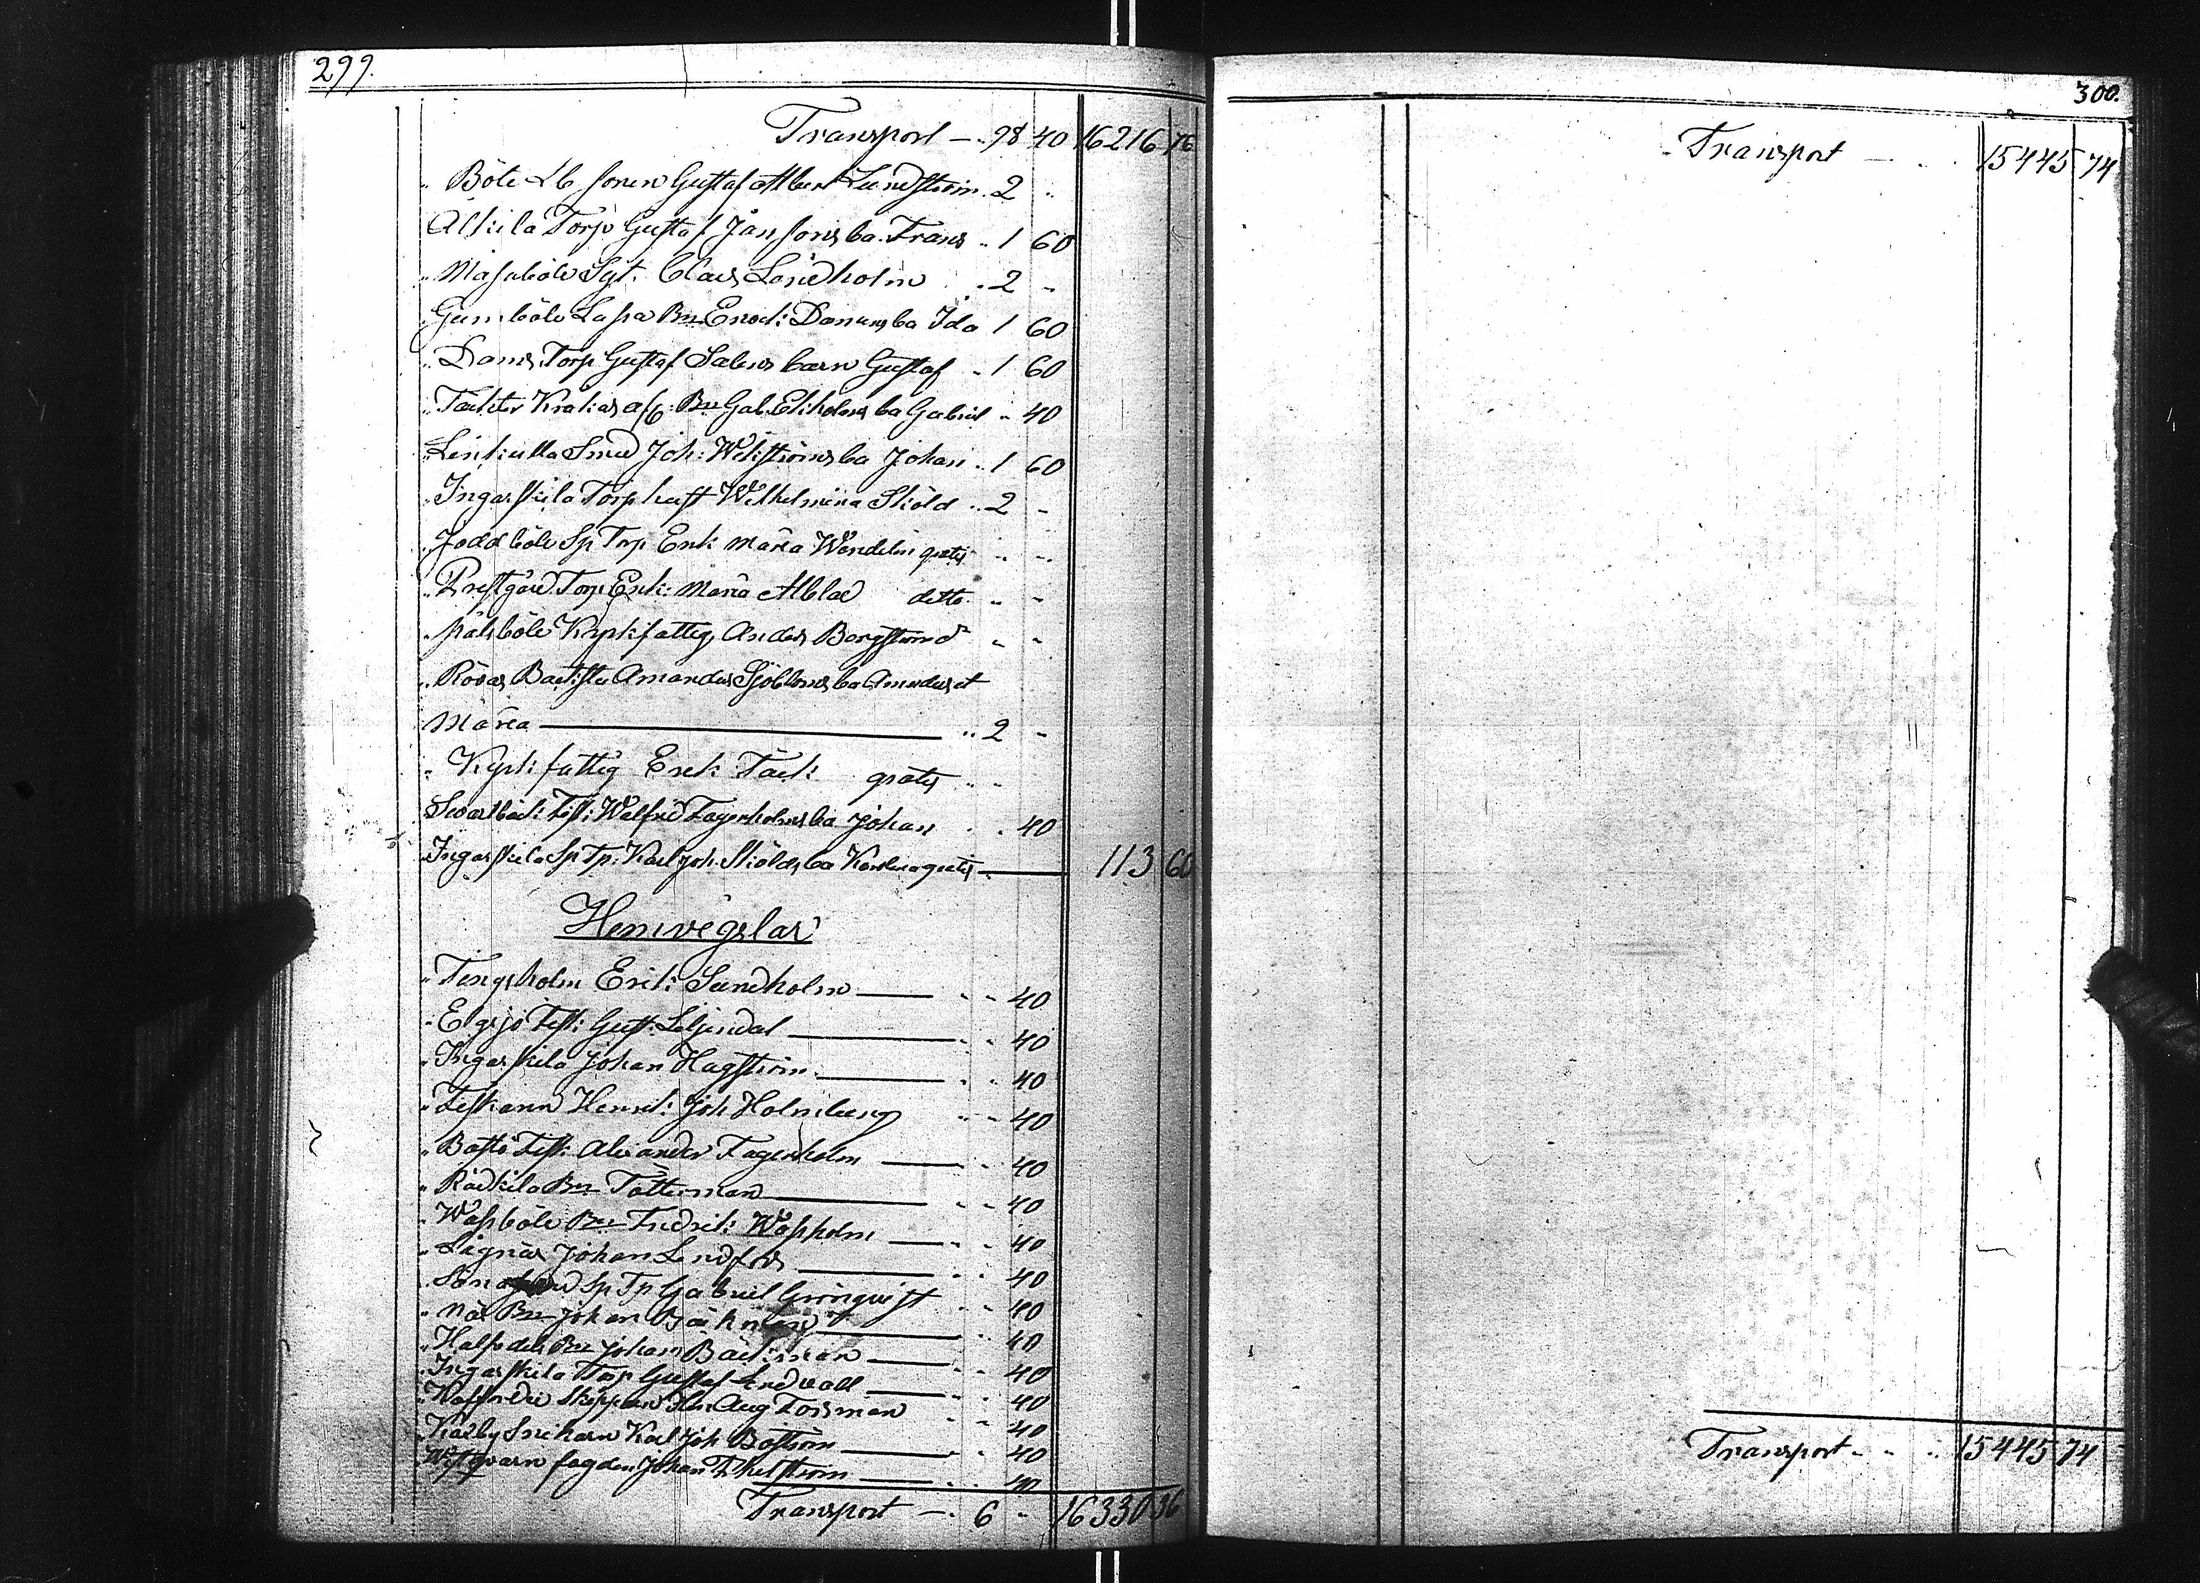 299.
Transport — 98 40 16216 76
" Böle Lb sonen Gustaf Albert Lundström 2 "
Alkila Torp Gustaf Jansons ba. Frans " 1 60
" Masabole Sgt. Claes Lindholm " 2 "
Gumbole Lassa Bn Erick: Danens ba Ida 1 60
" Dams Torp Gustaf Salens barn Gustaf " 1 60
" Täckter Krakas afsk: Bn Gab. Ekholms ba Gabriel " 40
" Linkulla Smed Joh: Wikströms ba Johan " 1 60
" Ingarskila Torp hust Wilhelmina Sköld " 2 -
" Joddböle Sp Torp Enk: Maria Wendelin gratis " "
" Prestgård Torp Enk: Maria Ablad ditto " "
" Påhlsböle Kyrkfattig Anders Bergström do " "
" Rövas Amandus Sjöbloms ba Amandus et
Maria — " 2 -
" Kyrkfattig Erik Täck gratis " "
Svartbäck: Fisk: Walfrid Fagerholms ba Johan " 40
" Ingarskila Sp Tp: Karl Joh. Skölds ba Karolina gratis — 113 60
Hemvegslar
" Tingsholm Erik: Sundholm — " " 40
" Elgsjö Fisk: Gust: Liljendal — " " 40
" Ingarskila Johan Hagström — " " 40
" Fiskarn Henrik: Joh Holmberg " " 40
" Bastö Fisk: Alexander Fagerholm — " " 40
" Rådkila Bn Tötterman — " " 40
" Wassböle Bn Fredrik: Wassholm — " " 40
" Lågnäs Johan Lindfors — " " 40
" Sp Tp Gabriel Grönqvist " " 40
" Näs Bn Johan Bäckman — " " 40
" Johan Bäckman — " " 40
" Ingarskila Torp Gustaf Lindvall — " " 40
" Skeppare Aug Forsman " " 40
" Kärby Snickarn Karl Joh Boström — " " 40
" Westqvarn fogden Johan — " " 40
Transport — " 6 " 16330 36
300.
Transport — " 15445 74
Transport " " " 15445 74